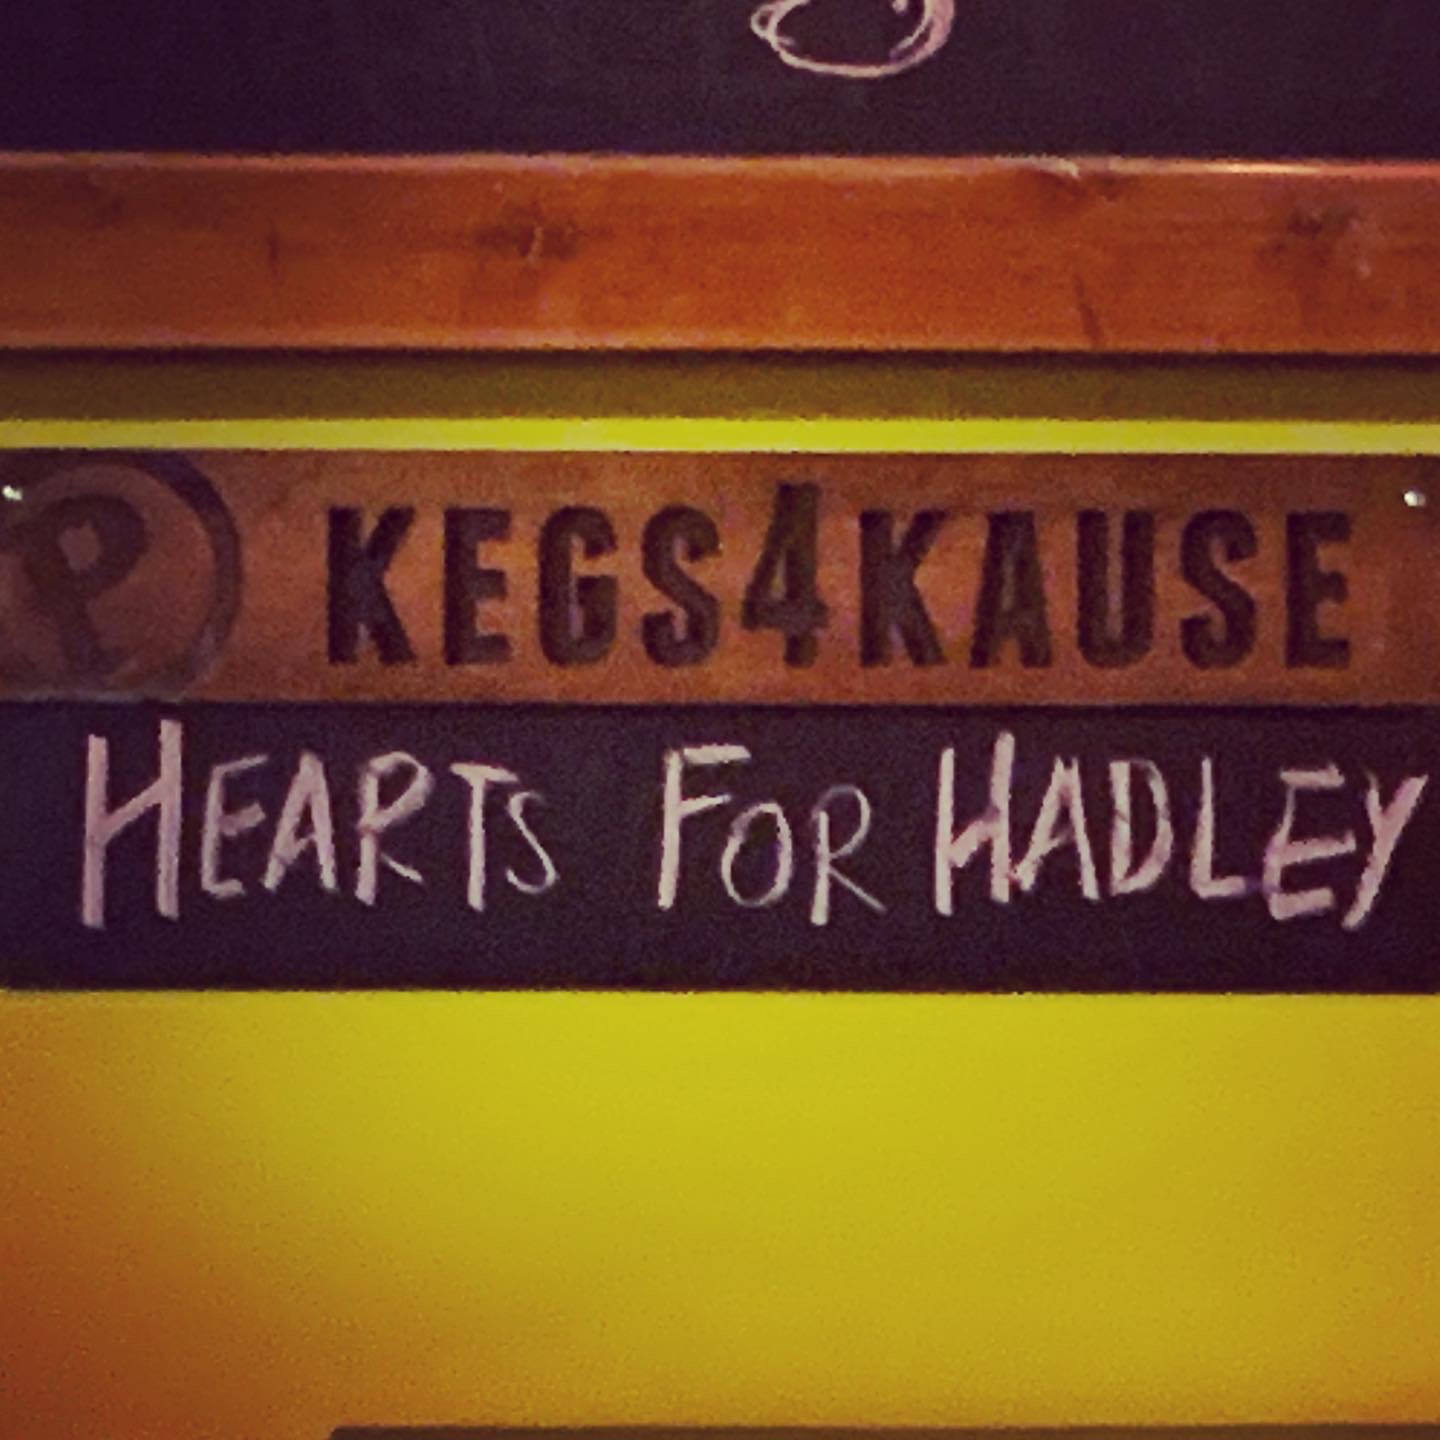 P KEGS4KAUSE
HEARTS FOR HADLEY